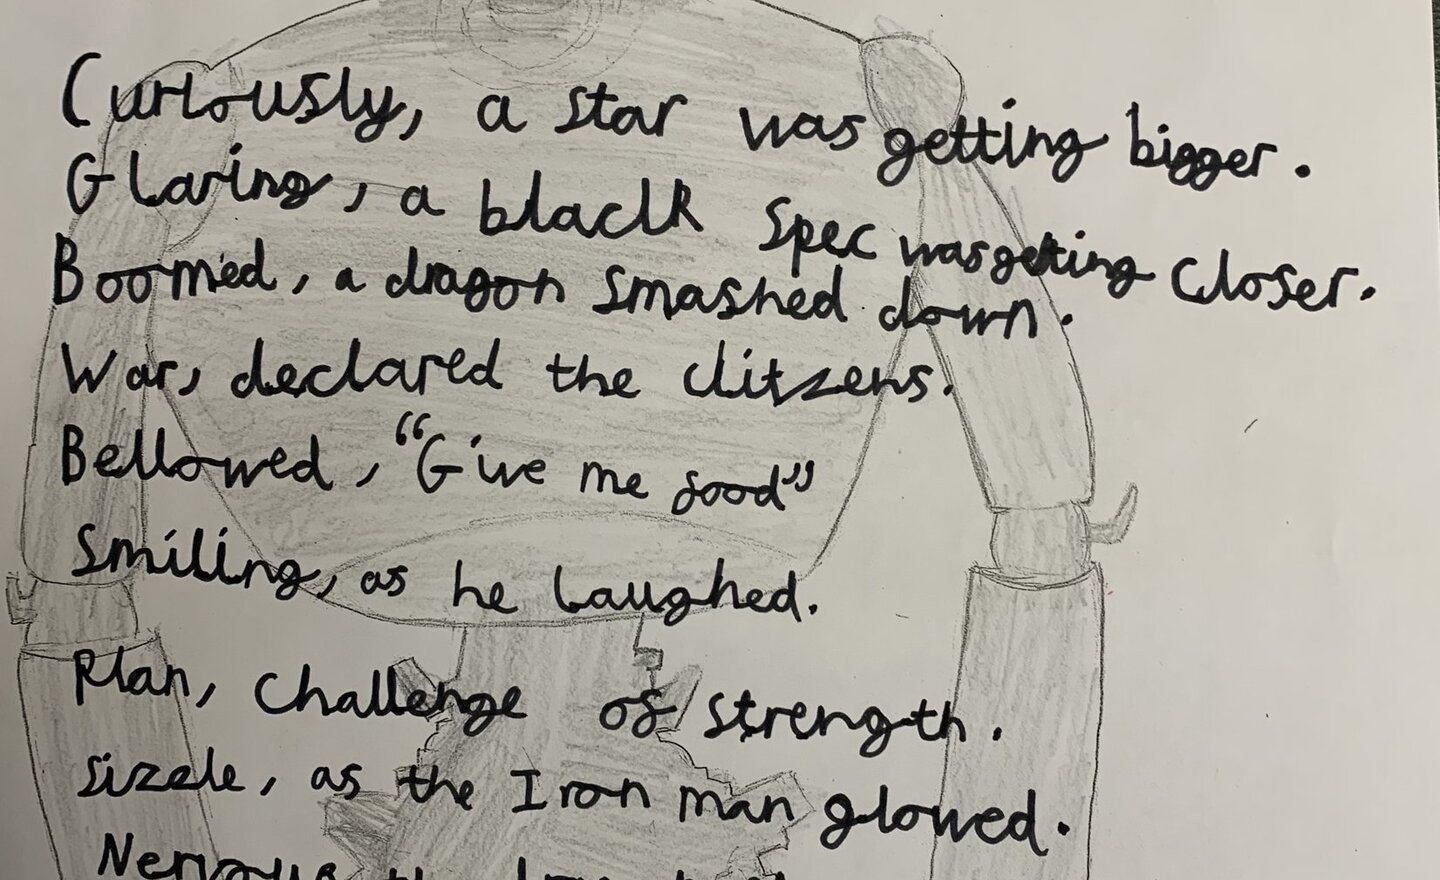 Curiously, a star was getting bigger.
Glaring, a black spec was getting closer.
Boomed, a dragon smashed down.
War, declared the clitzens.
Bellowed, “Give me food”
Smiling, as he laughed.
Plan, challenge of strength.
Sizzle, as the Iron man glowed.
Nervous the